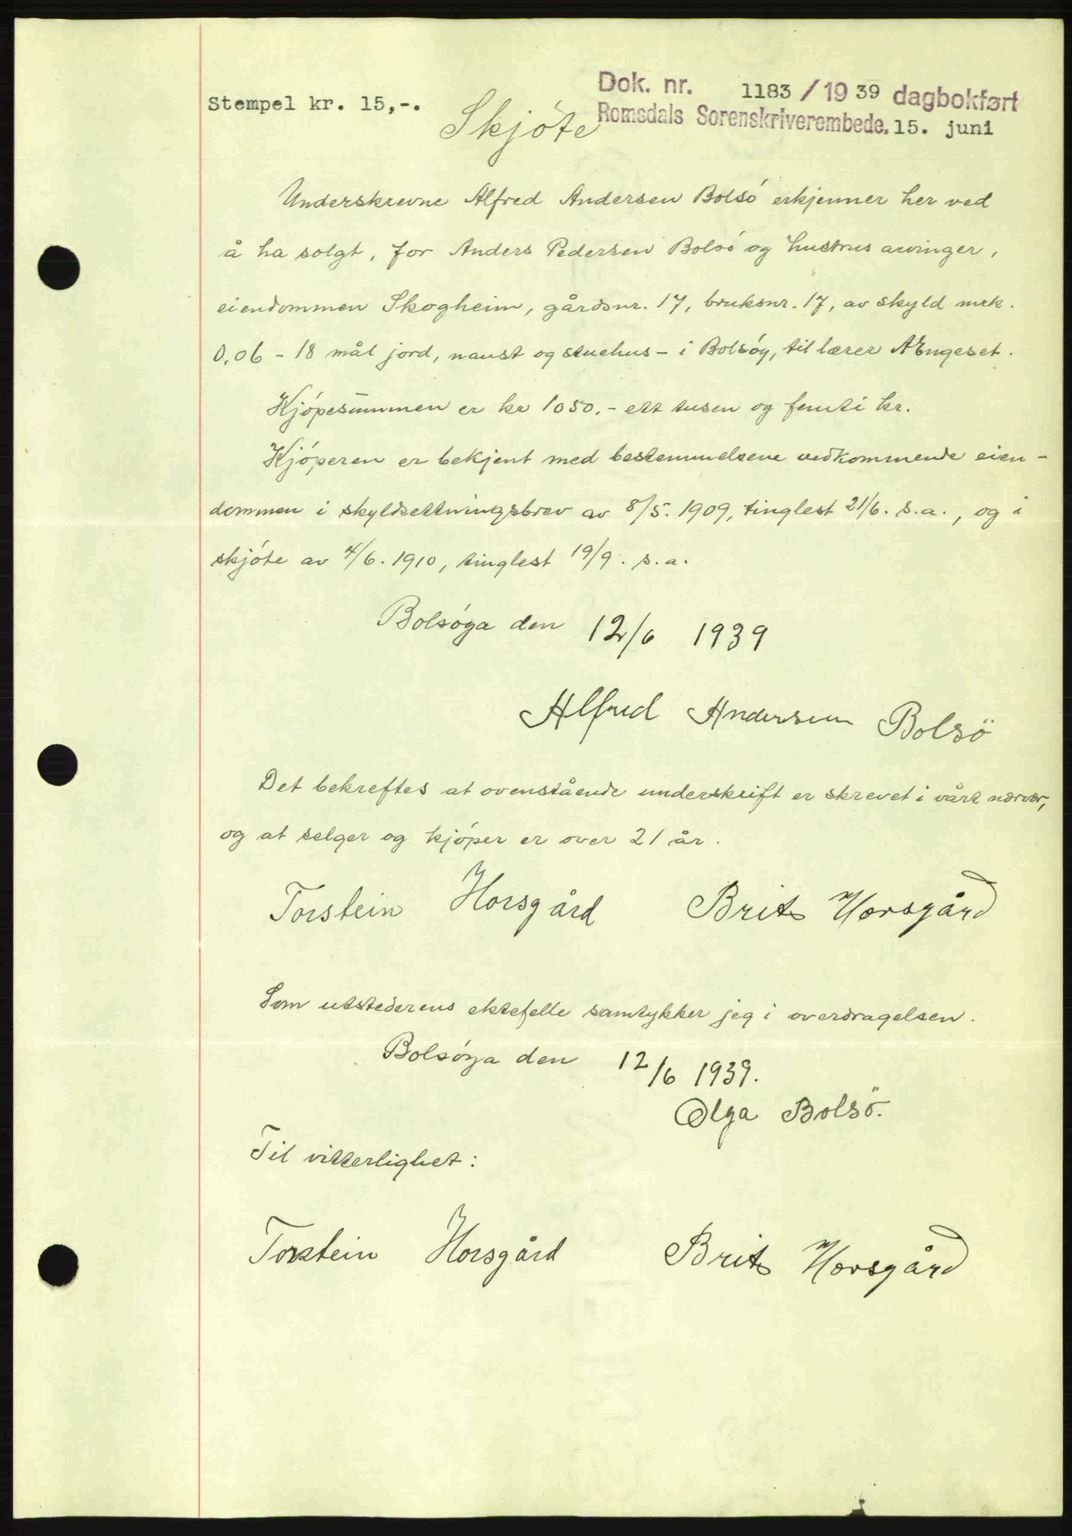 Stempel kr. 15,-.
Dok. nr. 1183 / 19 39 dagbokført
Romsdals Sorenskriverembede. 15. juni
Skjöte
Underskrevne Alfred Andersen Bolsö erkjenner her ved
å ha solgt, for Anders Pedersen Bolsö og hustrus arvinger,
eiendommen Skogheim, gårdsnr. 17, bruksnr. 17, av skyld mrk.
0,06 - 18 mål jord, naust og stuehus - i Bolsöy, til lærer A Engeset.
Kjöpesummen er kr 1050,- ett tusen og femti kr.
Kjöperen er bekjent med bestemmelsene vedkommende eien-
dommen i skyldsettningsbrev av 8/5. 1909, tinglest 21/6. s.a., og i
skjöte av 4/6. 1910, tinglest 19/9. s.a.
Bolsöya den 12/6 1939
Alfred Andersen Bolsö
Det bekreftes at ovenstående underskrift er skrevet i vårt nærvær,
og at selger og kjöper er over 21 år.
Torstein Horsgård Brit Horsgård
Som utstederens ektefelle samtykker jeg i overdragelsen.
Bolsöya den 12/6 1939.
Olga Bolsö.
Til vitterlighet:
Torstein Horsgård Brit Horsgård